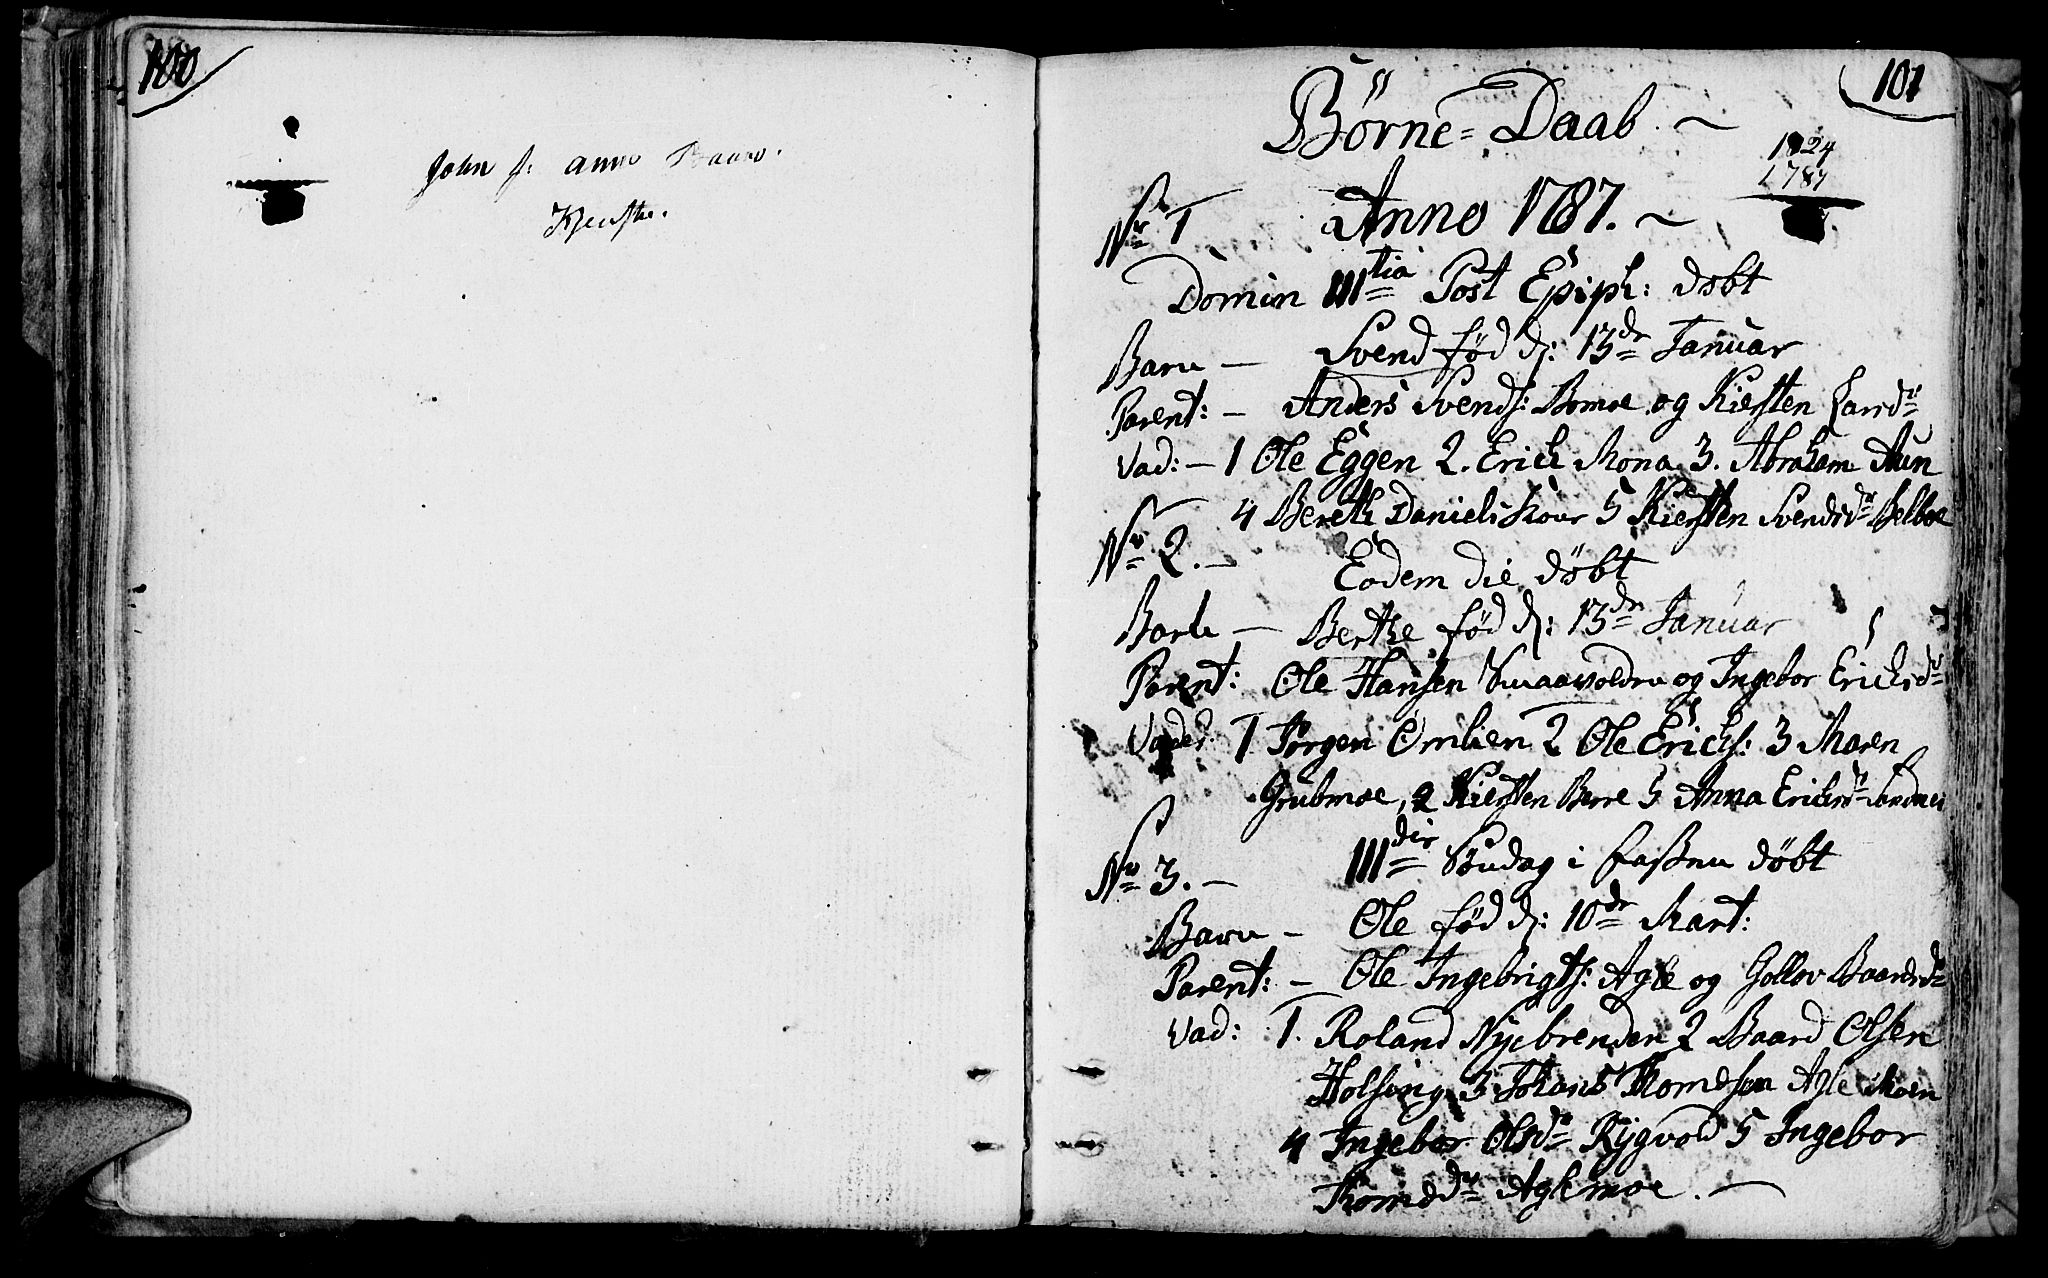 100
John J: anne Baard.
101
Börne-Daab. ~
1824
1787
Nr 1
Anno 1787. ~
Domin III tia Post Epiph: døbt
Barn — Svend fød d: 13de Januar
Parent: — Anders Svends: Bomoe og Kiersten Larsdr
Vad: — 1 Ole Eggen 2. Erich Mona 3. Abraham Aun
4 Bereth Danielskour 5 Kiersten Svendsdr Belboe
Nr 2. —
Eodem die døbt
Barn — Berthe fød d: 13de Januar
Parent: Ole Hansen Smaavoldru og Ingebor Ericksdr
Vad: 1 Jørgen Omlien 2 Ole Ericks: 3 Maren
Grubmoe, 2 Kiersten Berre 5 Anna Ericksdr Sandnes
Nr 3. —
III die Søndag i fastnu døbt
Barn — Ole fød d: 10de Mart:
Parent: — Ole Ingebrigts: Agle og Gollov Baardsdr
Vad: 1. Roland Nyebrenden 2 Baard Olsen
Holsing 3 Johans Thomesen Agle Moen
4 Ingebor Olsdr Rygvold 5 Ingebor
Thomsdr Aglemoe. —